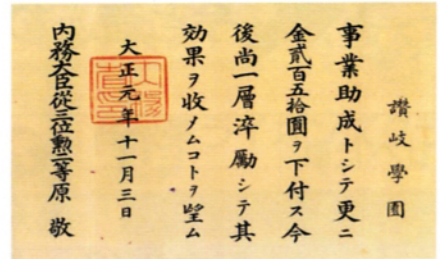 讃岐學園
事業助成トシテ更ニ
金貳百五拾圓ヲ下付ス今
後尚一層淬勵シテ其
効果ヲ收メムコトヲ望ム
大正元年十一月三日
内務大臣從三位勲一等原敬